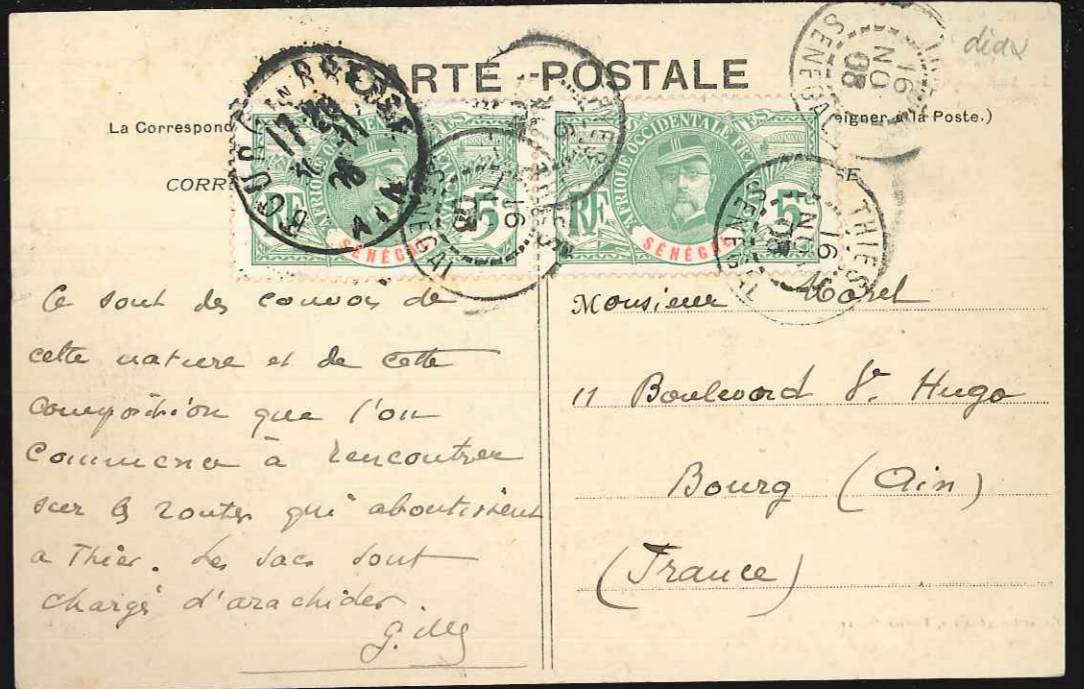 CARTE POSTALE
La Correspond
eigner à la Poste.)
CORR
SE
BOURG EN BRESSE
AIN
THIES
16
NO
08
SENEGAL
THIES
16
NO
08
SENEGAL
16
08
SENEGAL
AFRIQUE OCCIDENTALE FRANÇAISE
RF
5
SÉNÉGAL
RF
5
SÉNÉGAL
Ce sont des convois de
cette nature et de cette
composition que l'on
commence à rencontrer
sur les routes qui aboutissent
a Thiès. Les sacs sont
chargés d'arachides.
Monsieur Morel
11 Boulevard V. Hugo
Bourg (Ain)
(France)